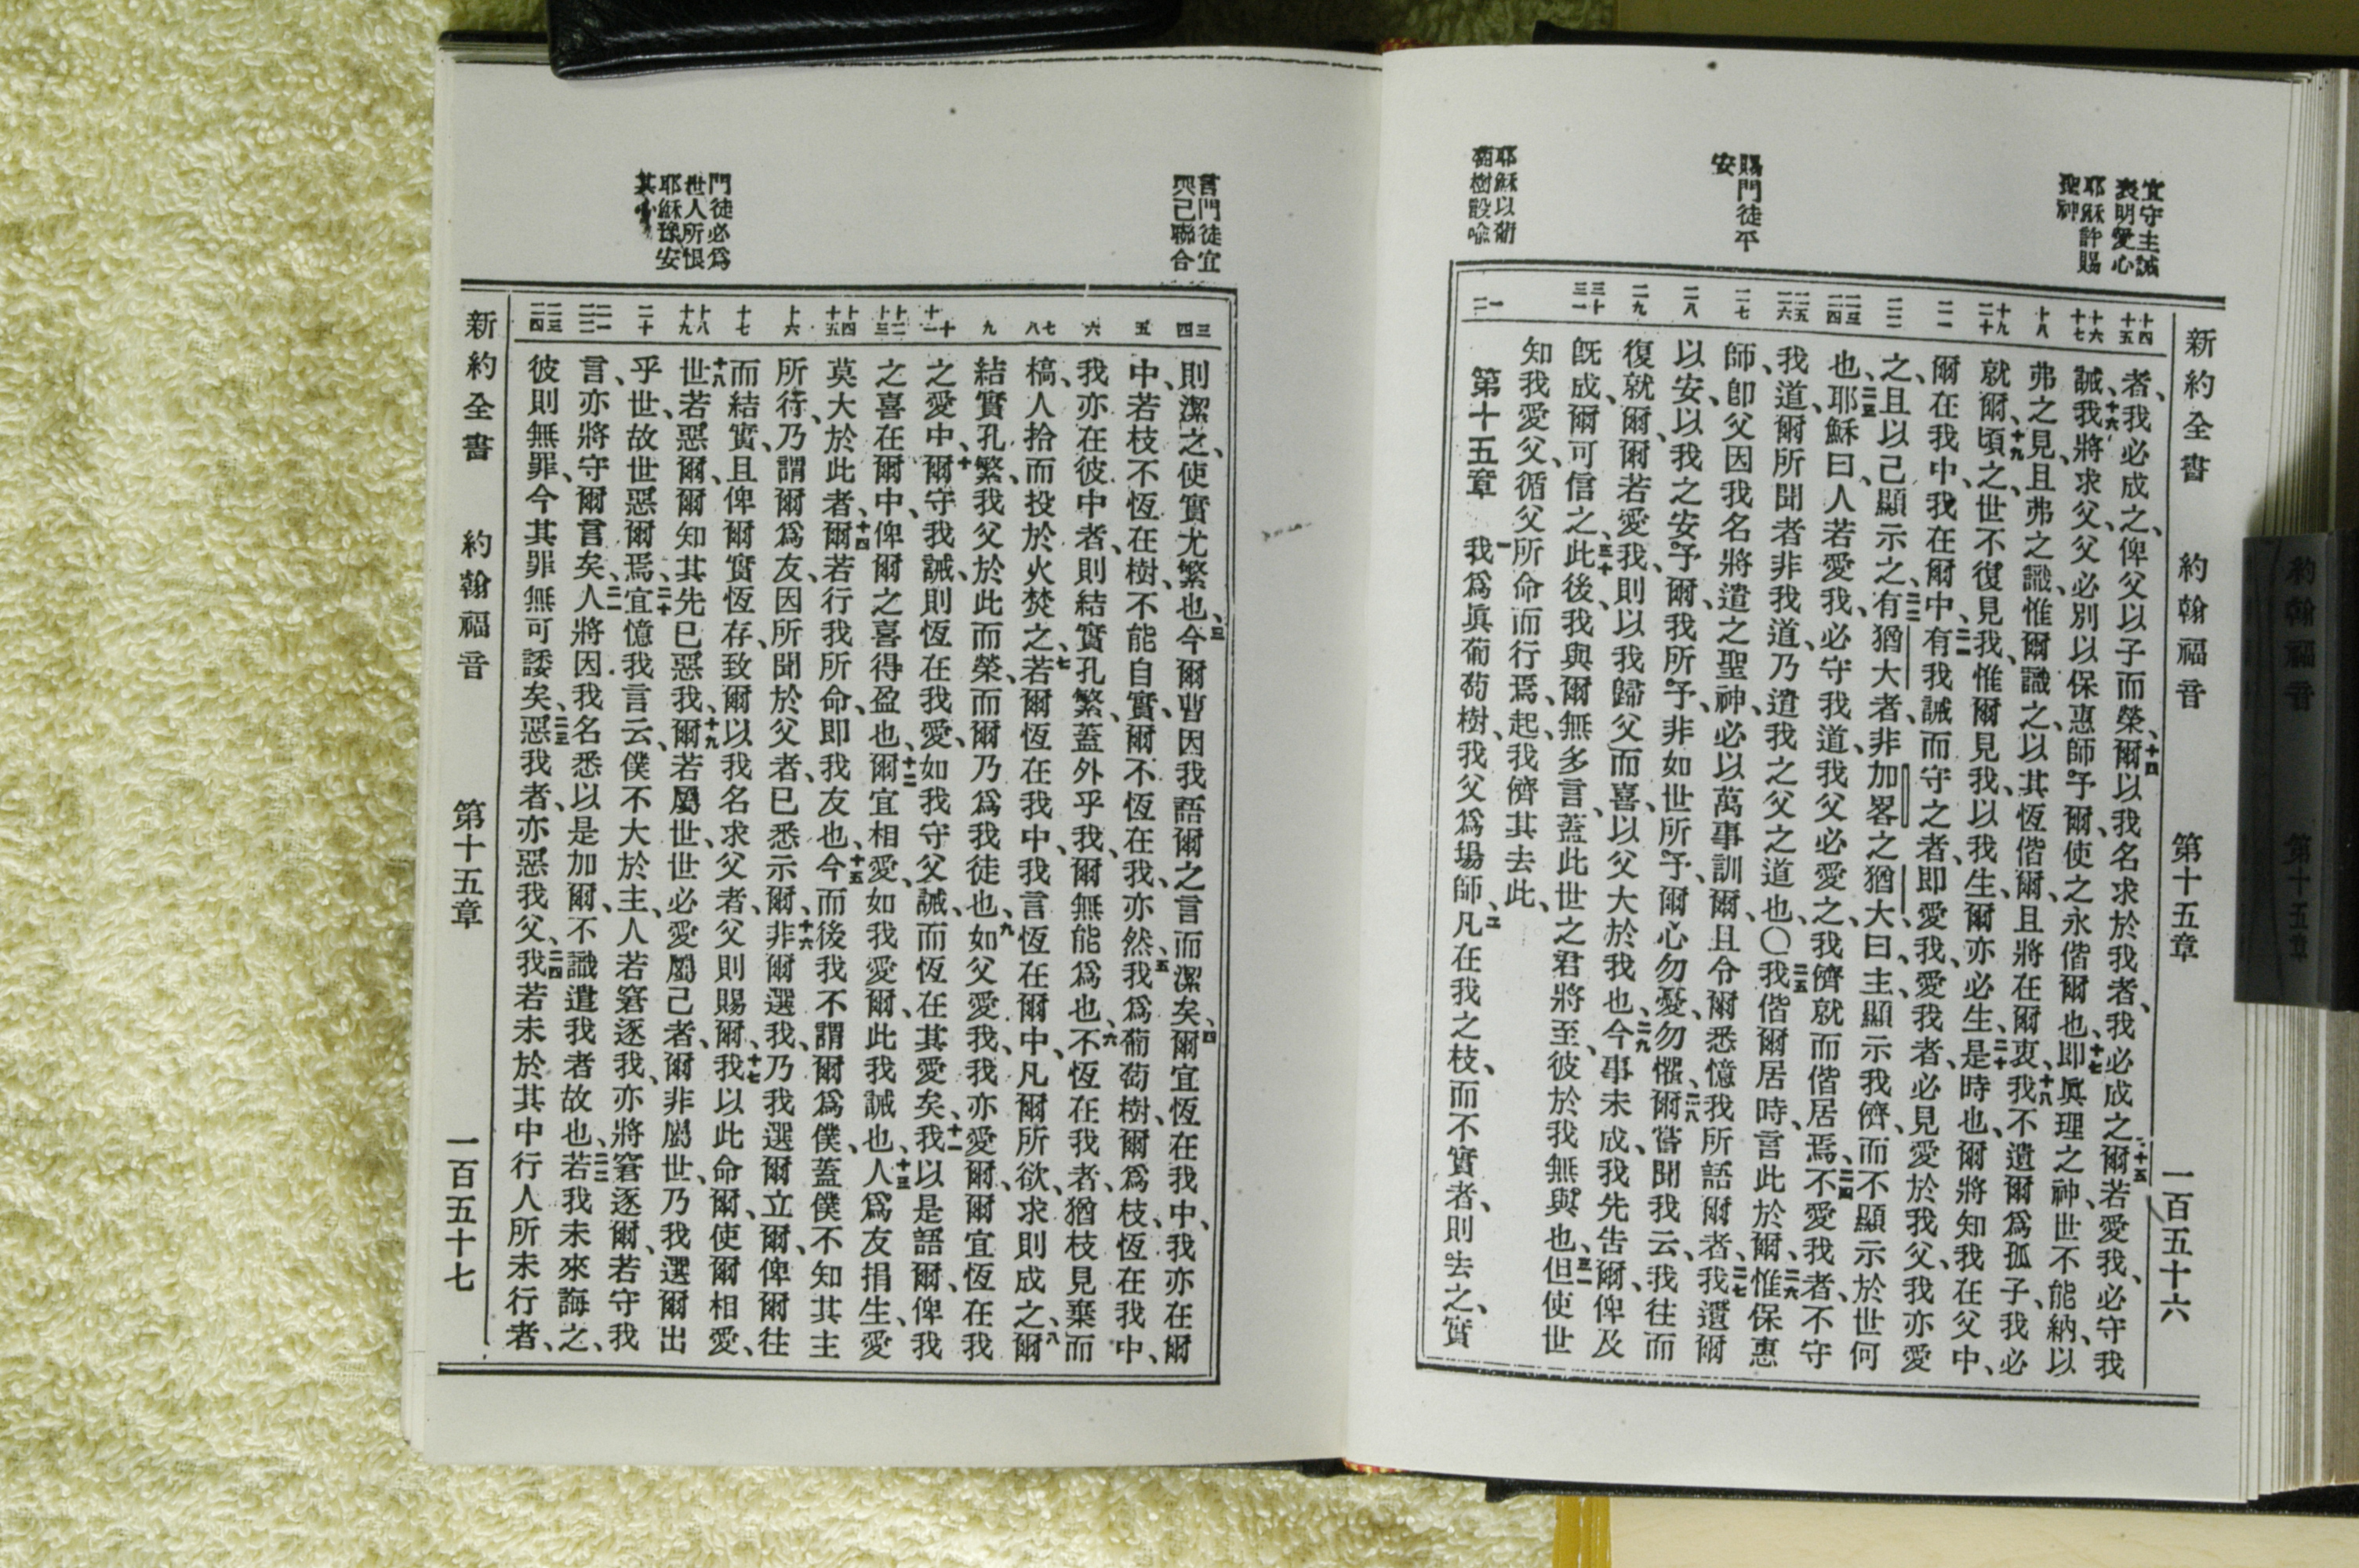 宜守主誡
表明愛心
耶穌許賜
聖神
賜門徒平
安
耶穌以葡
萄樹設喩
新約全書 約翰福音 第十五章 一百五十六
十四
十五
十六
十七
十八
十九
二十
二一
二二
二三
二四
二五
二六
二七
二八
二九
三十
三一
一
二
者、我必成之、俾父以子而榮、十四爾以我名求於我者、我必成之、十五爾若愛我、必守我
誡、十六我將求父、父必別以保惠師予爾、使之永偕爾也、十七即眞理之神、世不能納、以
弗之見、且弗之識、惟爾識之、以其恆偕爾、且將在爾衷、十八我不遺爾爲孤子、我必
就爾、十九頃之、世不復見我、惟爾見我、以我生、爾亦必生、二十是時也、爾將知我在父中、
爾在我中、我在爾中、二一有我誡而守之者、即愛我、愛我者、必見愛於我父、我亦愛
之、且以己顯示之、二二有猶大者、非加畧之猶大、曰、主、顯示我儕、而不顯示於世何
也、二三耶穌曰、人若愛我、必守我道、我父必愛之、我儕就而偕居焉、二四不愛我者、不守
我道、爾所聞者非我道、乃遣我之父之道也、〇二五我偕爾居時、言此於爾、二六惟保惠
師、卽父因我名將遣之聖神、必以萬事訓爾、且令爾悉憶我所語爾者、二七我遺爾
以安、以我之安予爾、我所予、非如世所予、爾心勿憂、勿懼、二八爾嘗聞我云、我往而
復就爾、爾若愛我、則以我歸父而喜、以父大於我也、二九今事未成、我先告爾、俾及
旣成、爾可信之、三十此後、我與爾無多言、蓋此世之君將至、彼於我無與也、三一但使世
知我愛父、循父所命而行焉、起、我儕其去此、
第十五章 一我爲眞葡萄樹、我父爲場師、二凡在我之枝、而不實者、則去之、實
言門徒宜
與己聯合
門徒必爲
世人所恨
耶穌豫安
其心
三
四
五
六
七
八
九
十
十一
十二
十三
十四
十五
十六
十七
十八
十九
二十
二一
二二
二三
二四
則潔之、使實尤繁也、三今爾曹因我語爾之言而潔矣、四爾宜恆在我中、我亦在爾
中、若枝不恆在樹、不能自實、爾不恆在我、亦然、五我爲葡萄樹、爾爲枝、恆在我中、
我亦在彼中者、則結實孔繁、蓋外乎我、爾無能爲也、六不恆在我者、猶枝見棄而
槁、人拾而投於火焚之、七若爾恆在我中、我言恆在爾中、凡爾所欲、求則成之、八爾
結實孔繁、我父於此而榮、而爾乃爲我徒也、九如父愛我、我亦愛爾、爾宜恆在我
之愛中、十爾守我誡、則恆在我愛、如我守父誡、而恆在其愛矣、十一我以是語爾、俾我
之喜在爾中、俾爾之喜得盈也、十二爾宜相愛、如我愛爾、此我誡也、十三人爲友捐生、愛
莫大於此者、十四爾若行我所命、即我友也、十五今而後我不謂爾爲僕、蓋僕不知其主
所行、乃謂爾爲友、因所聞於父者、已悉示爾、十六非爾選我、乃我選爾立爾、俾爾往
而結實、且俾爾實恆存、致爾以我名求父者、父則賜爾、十七我以此命爾、使爾相愛、
十八世若惡爾、爾知其先已惡我、十九爾若屬世、世必愛屬己者、爾非屬世、乃我選爾出
乎世、故世惡爾焉、二十宜憶我言云、僕不大於主、人若窘逐我、亦將窘逐爾、若守我
言、亦將守爾言矣、二一人將因我名悉以是加爾、不識遣我者故也、二二若我未來誨之、
彼則無罪、今其罪無可諉矣、二三惡我者、亦惡我父、二四我若未於其中行人所未行者、
新約全書 約翰福音 第十五章 一百五十七
約翰福音 第十五章